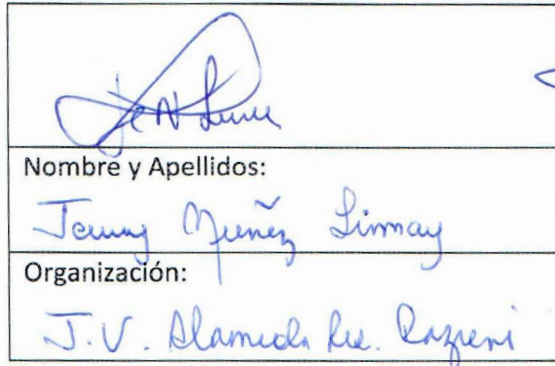 Nombre y Apellidos:
Jenny Muñoz Limay
Organización:
J.V. Alameda